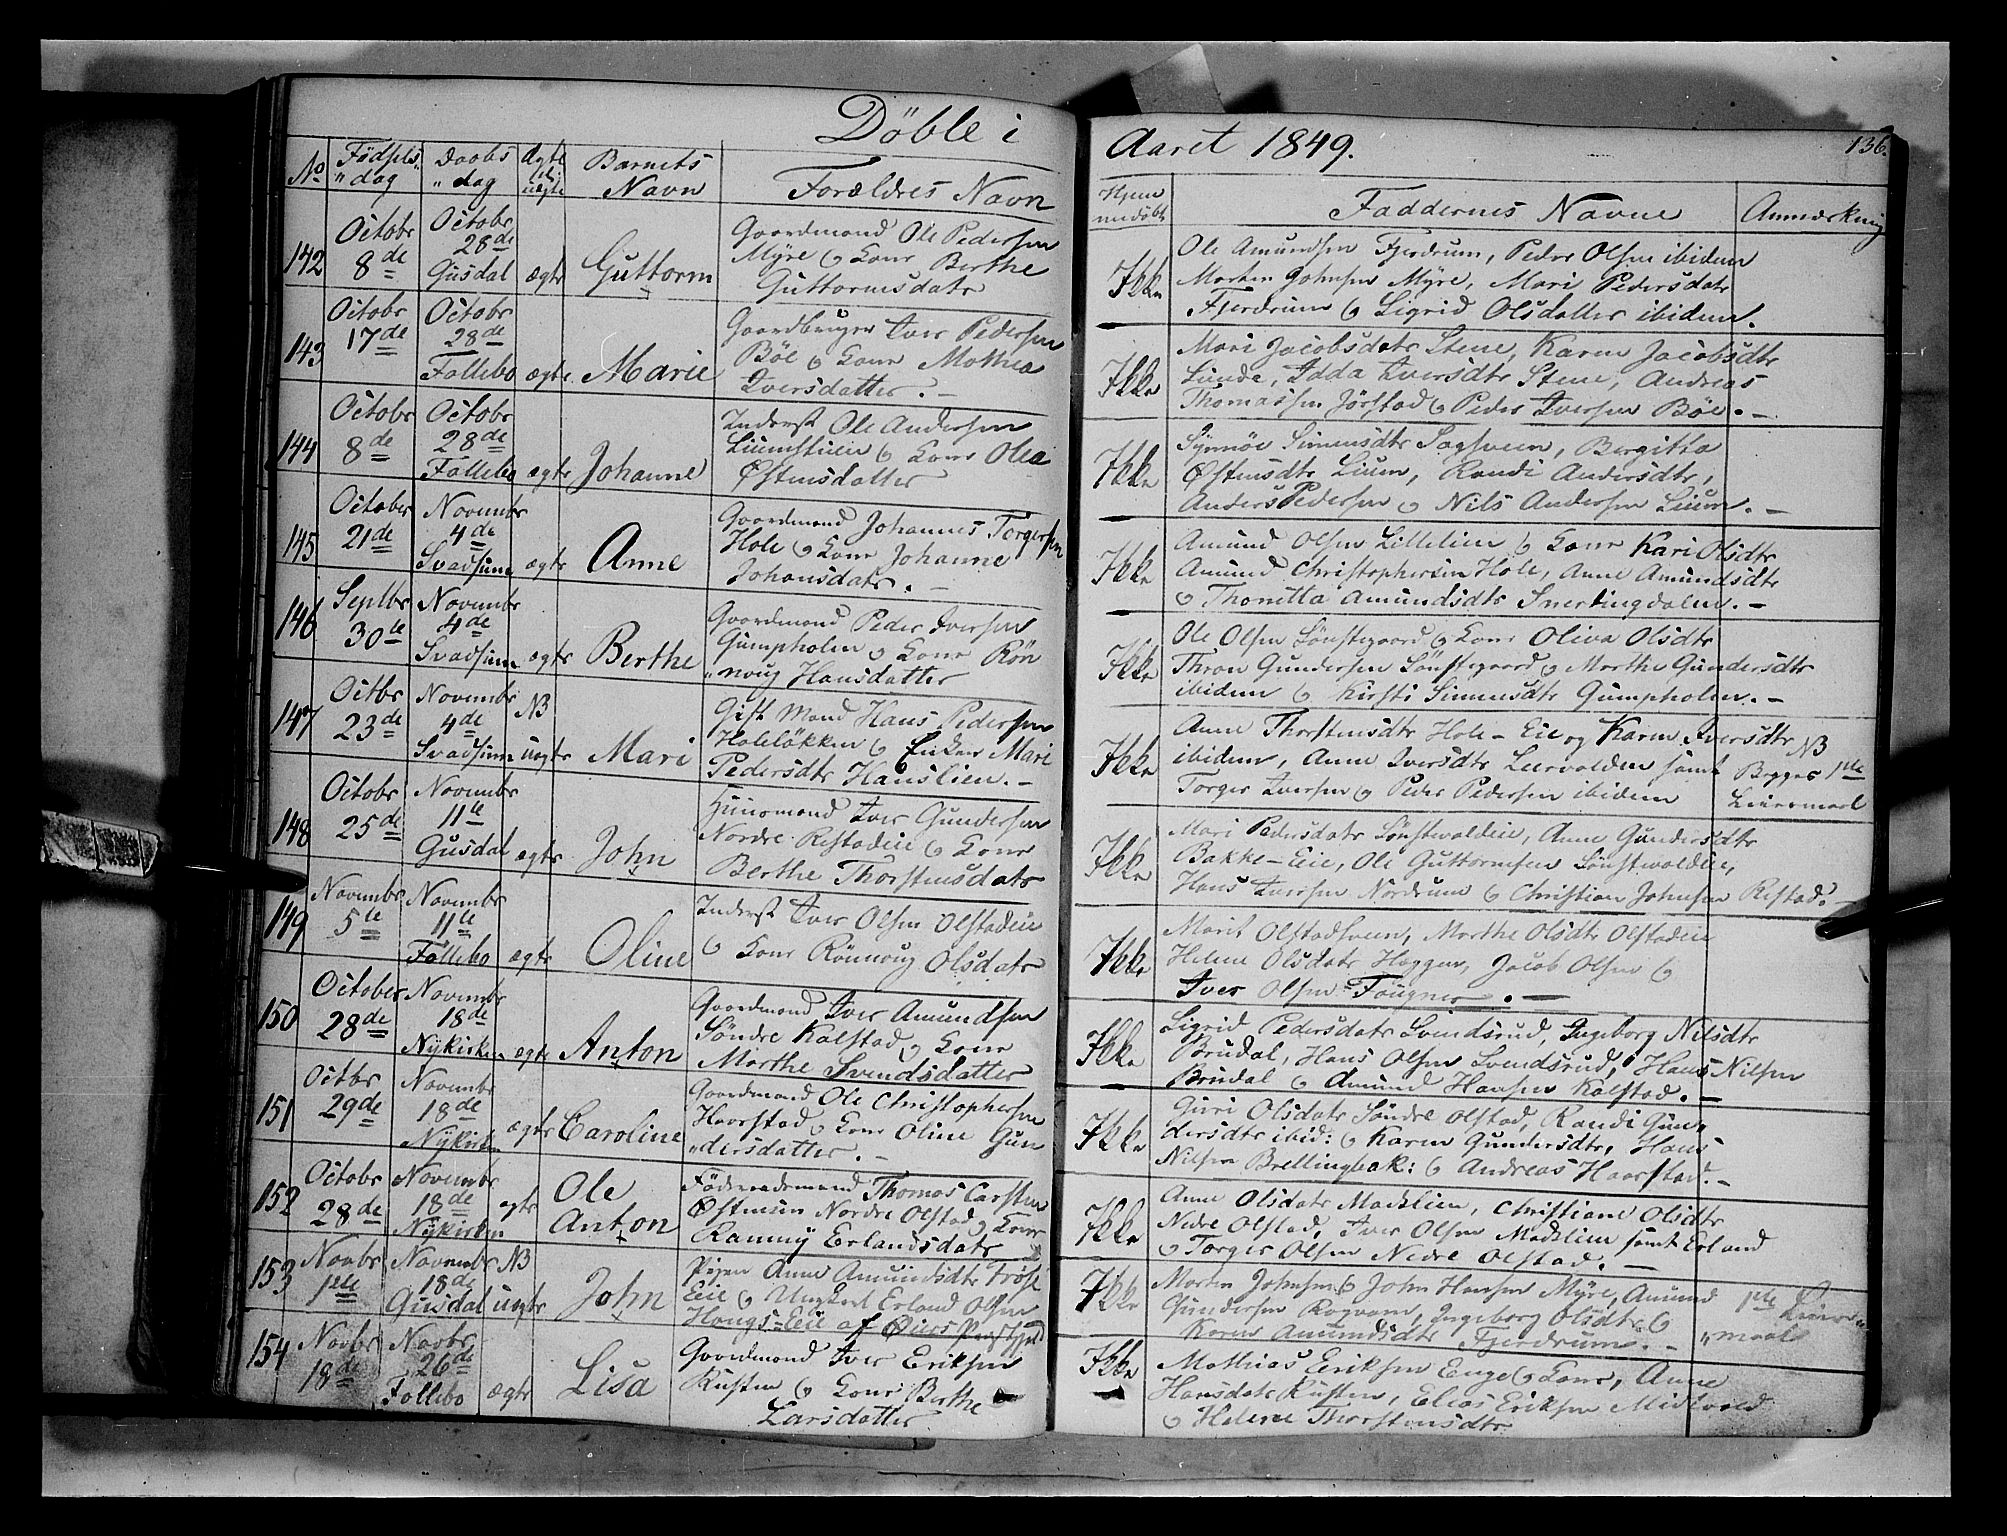 Döble i Aaret 1849.
136.
No Födsels dag Daabs dag Ægte el. uægte Barnets Navn Forældres Navn Hjemmedöbt Faddernes Navne Anmærkning
142 Octobr 8de Octobr 28de Gusdal ægte Guttorm
Gaardmand Ole Pedersen
Myre og Kone Berthe
Guttormsdatr
Ikke
Ole Amundsen Fjerdrum, Peder Olsen ibidem
Morten Johnsen Myre, Mari Pedersdatr
Fjerdrum og Sigrid Olsdatter ibidem.
143 Octobr 17de Octobr 28de Follebo ægte Marie
Gaardbruger Iver Pedersen
Böe og Kone Mathea
Iversdatter. –
Ikke
Mari Jacobsdatr Stene, Karen Jacobsdtr
Lunde, Idda Iversdtr Stene, Andreas
Thomassen Jörstad og Peder Iversen Böe. –
144 Octobr 8de Octobr 28de Follebo ægte Johanne
Inderst Ole Andersen
Liumstuen og Kone Olea
Östensdatter
Ikke
Synnöe Simensdtr Sagsveen, Bergitta
Östensdtr Lium, Randi Andersdtr,
Anders Pedersen og Nils Andersen Lium. –
145 October 21de Novembr 4de Svadsum ægte Anne
Gaardmand Johannes Torgersen
Hole og Kone Johanne
Johansdatr. –
Ikke
Amund Olsen Lillelien og Kone Kari Olsdtr
Amund Christophersen Hole, Anne Amundsdtr
og Thonetta Amundsdtr Snertingdalen. –
146 Septbr 30te Novembr 4de Svadsum ægte Berthe
Gaardmand Peder Iversen
Gumpholen og Kone Rön
„noug Hansdatter
Ikke
Ole Olsen Sönstegaard og Kone Oliva Olsdtr
Thron Gundersen Sönstegaard og Marthe Gundersdtr
ibidem og Kirsti Simensdtr Gumpholen. –
147 Octbr 23de Novembr 4de Svadsum NB uægte Mari
Gift Mand Hans Pedersen
Holeløkken og Enken Mari
Pedersdtr Hauslien. –
Ikke
Anne Thorstensdtr Hole-Eie og Karen Iversdtr
ibidem, Anne Iversdtr Leervolden samt
Torger Iversen og Peder Pedersen ibidem
NB
Begges 1ste
Leiermaal
148 Octobr 25de Novembr 11te Gusdal ægte John
Huusmand Iver Gundersen
Nordre Restadeie og Kone
Berthe Thorstensdatr
Ikke
Mari Pedersdatr Sönstvoldeie, Anne Gundersdtr
Bakke-Eie, Ole Guttormsen Sönstvoldeie,
Hans Iversen Nordrum og Christian Johnsen Restad. –
149 Novembr 5te Novembr 11te Follebo ægte Oline
Inderst Iver Olsen Olstadeie
og Kone Rönnoug Olsdatr
Ikke
Marit Olstadsveen, Marthe Olsdtr Olstadeie
Helene Olsdatr Haggen, Jacob Olsen og
Iver Olsen Fougner. –
150 October 28de Novembr 18de Nykirken ægte Anton
Gaardmand Iver Amundsen
Söndre Kalstad og Kone
Marthe Svendsdatter
Ikke
Sigrid Pedersdatr Svendsrud, Ingeborg Nilsdtr
Brudal, Hans Olsen Svendsrud, Hans Nilsen
Brudal og Amund Hansen Kalstad. –
151 Octbr 29de Novembr 18de Nykirken ægte Caroline
Gaardmand Ole Christophersen
Haarstad og Kone Oline Gun
„dersdatter. –
Ikke
Guri Olsdatr Söndre Olstad, Randi Gun„
dersdtr ibid: og Karen Gundersdtr, Hans
Nilsen Brellingbak: og Andreas Haarstad. –
152 Octobr 28de Novembr 18de Nykirken ægte Ole Anton
Föderaadsmand Thomas Carsten
Östensen Nordre Olstad og Kone
Ranny Erlandsdatr
Ikke
Anne Olsdatr Madslien, Christiane Olsdtr
Nedre Olstad, Iver Olsen Madslien samt Erland
og Torger Olsen Nedre Olstad. –
153 Novbr 1ste Novembr 18de Gusdal NB uægte John
Pigen Anne Amundsdtr Tröst
Eie og Ungkarl Erland Olsen
Haugs-Eie af Öiers Præstgjeld
Ikke
Morten Johnsen og John Hansen Myre, Amund
Gundersen Rogvam, Ingeborg Olsdtr og
Karen Amundsdtr Fjerdrum. –
1ste Leier„
„maal
154 Novbr 18de Novbr 26de Follebo ægte Lisa
Gaardmand Iver Eriksen
Kusten og Kone Berthe
Larsdatter
Ikke
Mathias Eriksen Enge og Kone, Anne
Hansdatr Kusten, Elias Eriksen Midtvold
og Helene Thorstensdtr